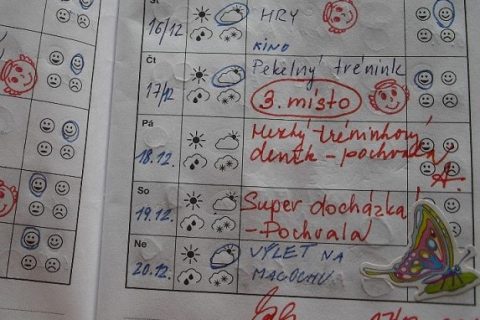 16/12 HRY
KINO
Čt
17/12 Pekelný trénink
3. místo
Pá
Hezký tréninkový
18.12. deník - pochvala
So
Super docházka!
19.12. - Pochvala
Ne
VÝLET NA
20.12. MAGOCHU